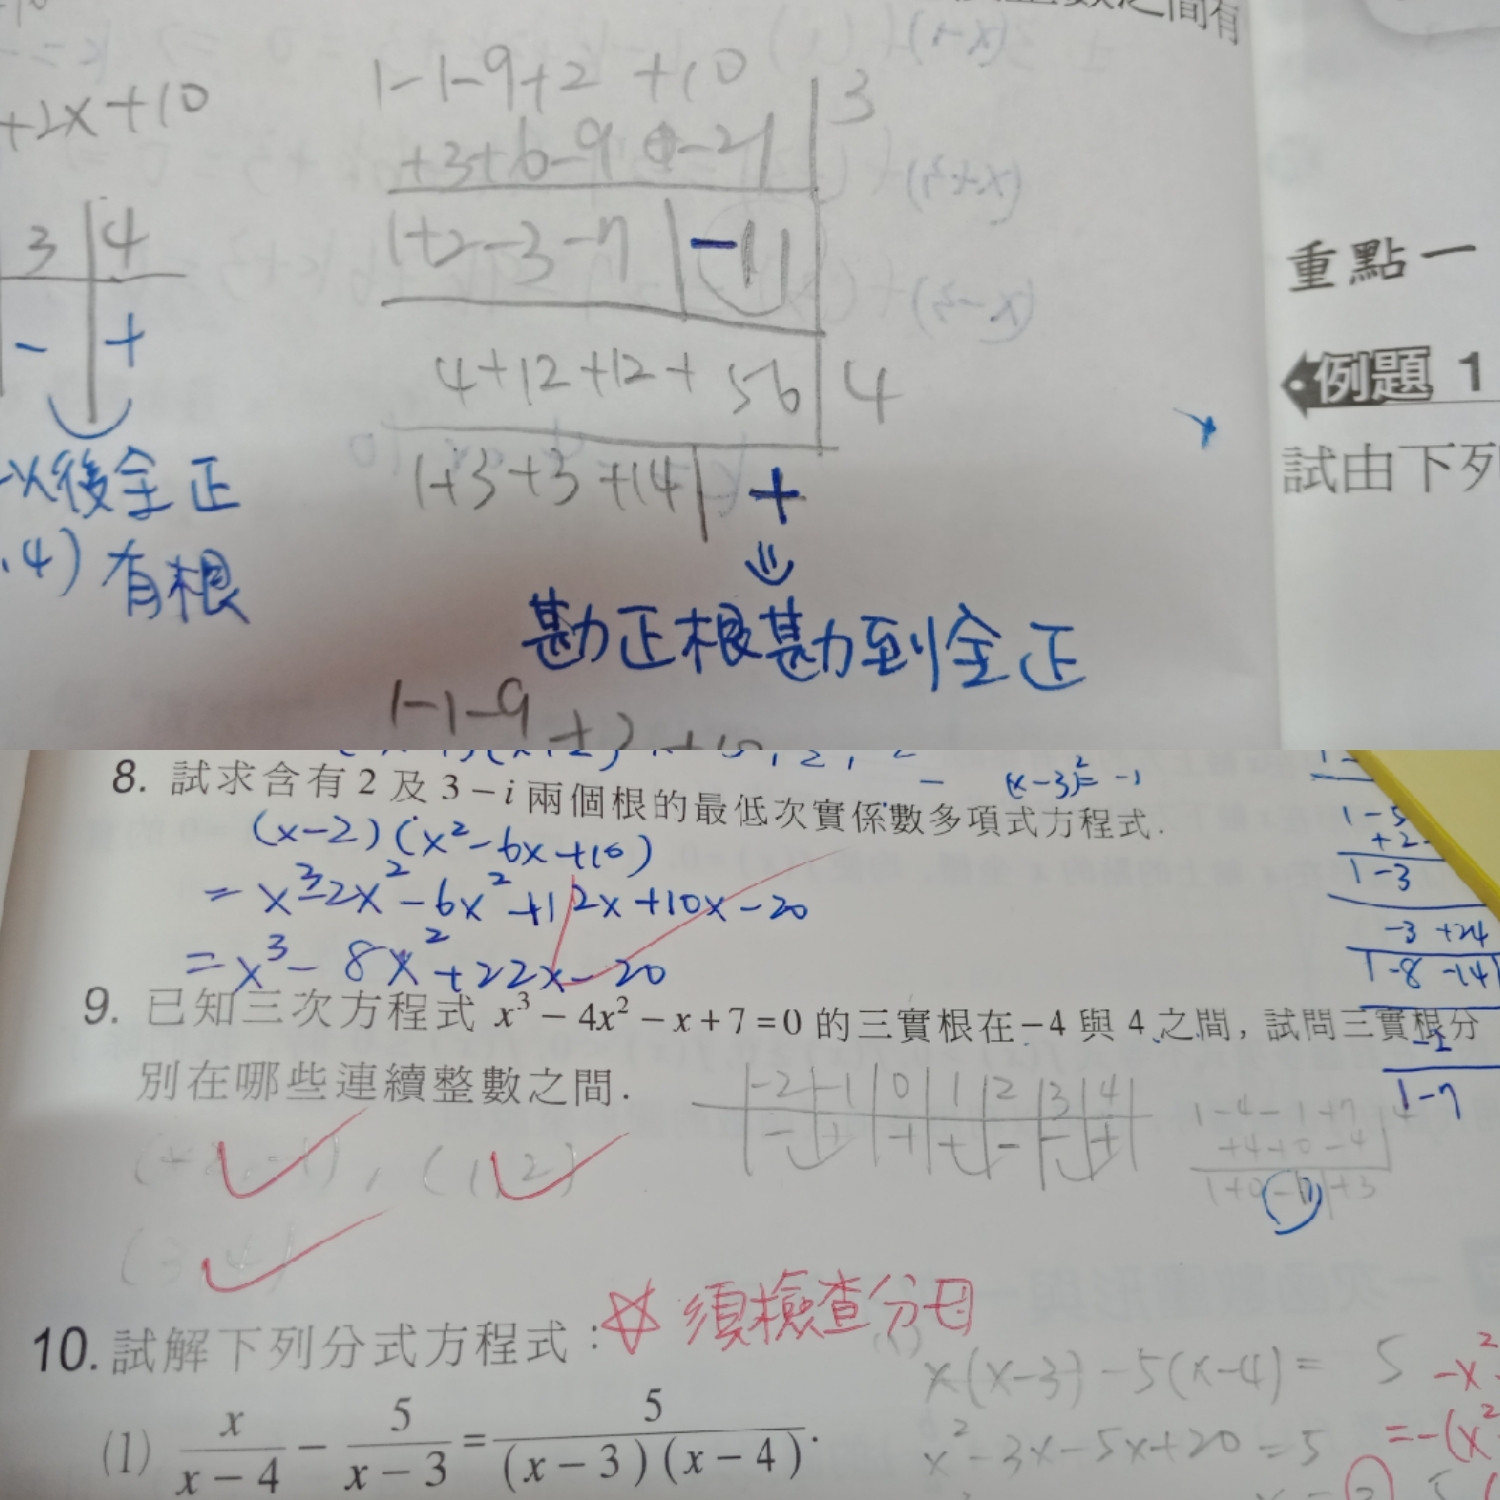 之間有
+2x+10
1-1-9+2 +10
3
+3+6-9 -21
1+2-3-7 -11
3 4
- +
4+12+12+ 56 4
1+3+3+14 +
以後全正
.4) 有根
⇓
勘正根勘到全正
1-1-9+2+10
重點一
例題 1
試由下列
8. 試求含有 2 及 3 − i 兩個根的最低次實係數多項式方程式.
(x-3)²= -1
(x-2)(x²-6x+10)
= x³-2x²-6x²+12x+10x-20
= x³- 8x²+22x-20
1-5
+2
1-3
-3 +24
1-8 -14
1-7
9. 已知三次方程式 x³ − 4x² − x + 7 = 0 的三實根在 −4 與 4 之間, 試問三實根分
別在哪些連續整數之間.
-2 -1 0 1 2 3 4
- + + + - - +
1-4-1+7 4
+4+0-4
1+0-1 +3
(-2,-1), (1,2)
(3,4)
10. 試解下列分式方程式:
☆ 須檢查分母
(1) x/(x − 4) − 5/(x − 3) = 5/((x − 3)(x − 4)).
(1) x(x-3)-5(x-4)= 5
x²-3x-5x+20=5
-x²
=-(x²